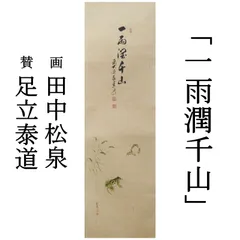 「一雨潤千山」
画 田中松泉
賛 足立泰道
一雨潤千山